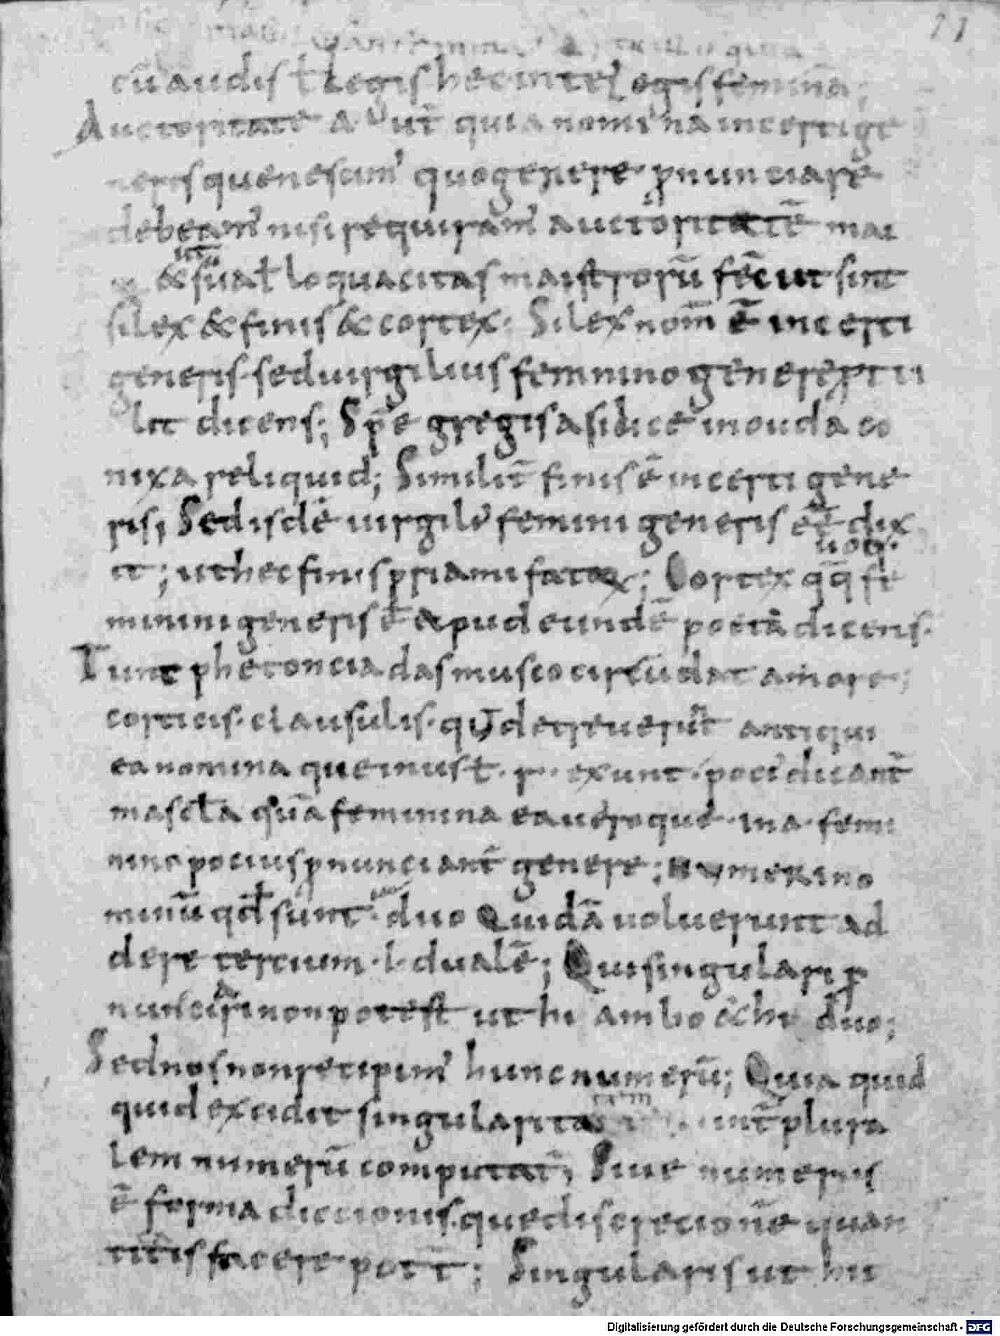 21
cū audis ł legis hec intellegis feminina;
Auctoritate A ut̄ quia nomina incerti ge
neris que nescim' quo genere p̱nunciare
debeam' nisi requiram' auctoritatē mai
& sua ł loquacitas maistrorū fēc ut sint
silex & finis & cortex. Silex nom̄ ē incerti
generis. sed uirgilius feminino genere ptu
lit dicens; Spē gregis a silice in nuda co
nixa reliquid; Similit̄ finis ē incerti gene
ris; Sed isdē uirgili' feminini generis eē dix
it; ut hec finis priami fatoꝝ; Cortex q̄q̄ fe
uoq;
minini generis ē apud eundē poetā dicens.
Tunc phetonciadas musco circūdat amare;
corticis. clausulis. qd̄ decreuerunt̄ antiqui
ea nomina que in us ł. r. exunt. poci' dicant̄
mascl̄a quā feminina ea uero que. in a. femi
nino pocius p̱nunciant̄ genere; NUMERI no
minū qd̄ sunt. duo Quidā uoluerunt ad
dere tercium. i. dualē; Qui singulari p̱
nunciari non potest ut hi ambo & hi duo;
Sed nos non recipim' hunc numerū; Quia quid
quid excidit singularita int̄ plura
lem numerū computat̄; Siue numerus
ē forma diccionis. que discrecionē quan
titatis facere potē; Singularis ut hic
Digitalisierung gefördert durch die Deutsche Forschungsgemeinschaft - DFG